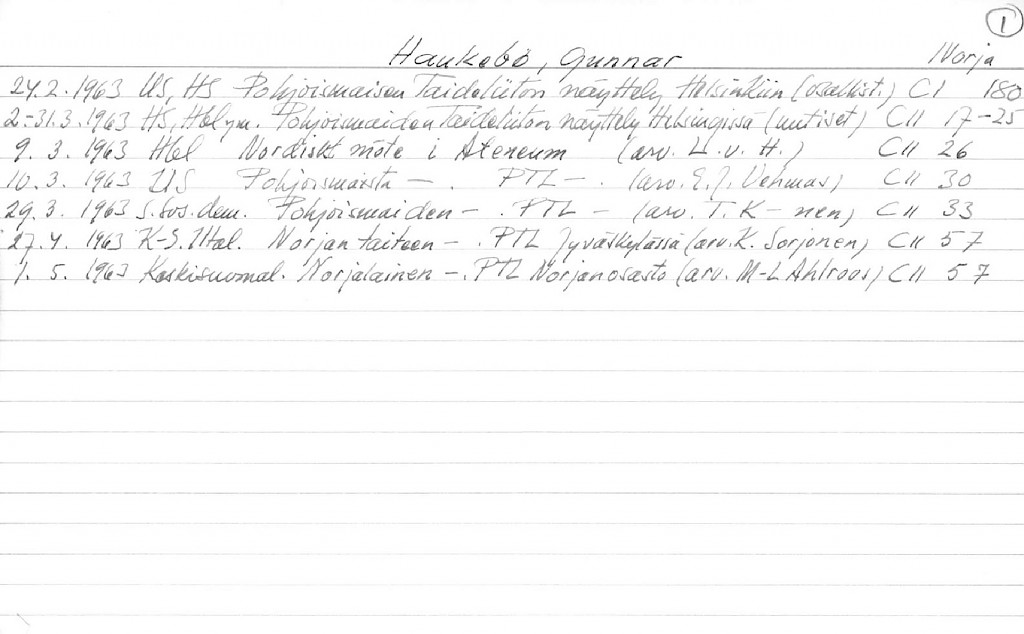 1
Haukebö, Gunnar Norja
24.2.1963 US, HS Pohjoismaisen Taideliiton näyttely Helsinkiin (osallist.) CI 180
2.-31.3.1963 HS, Hbl ym. Pohjoismaiden Taideliiton näyttely Helsingissä (uutiset) CII 17-25
9.3.1963 Hbl Nordiskt möte i Ateneum (arv. H.) CII 26
10.3.1963 US Pohjoismaista - . PTL - . (arv. E.J. Vehmas) CII 30
29.3.1963 S.Sos.dem. Pohjoismaiden - . PTL - (arv. T.K-nen) CII 33
27.4.1963 K-S. Ital. Norjan taiteen - . PTL Jyväskylässä (arv. K. Sorjonen) CII 57
1.5.1963 Keskisuomal. Norjalainen - . PTL Norjan osasto (arv. M-L Ahlroos) CII 57